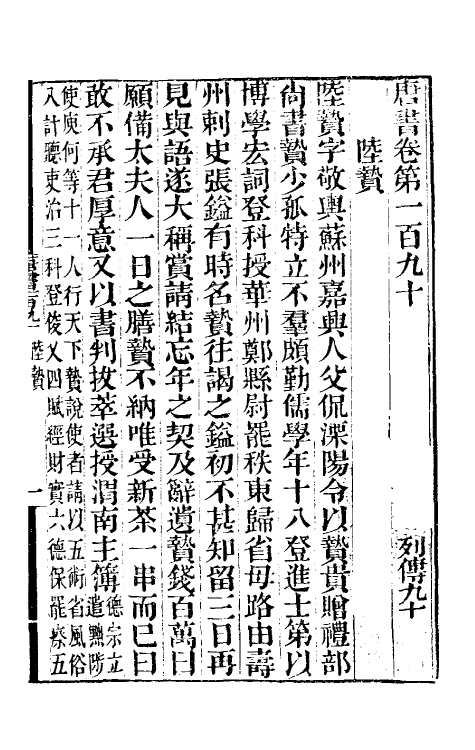 唐書卷第一百九十　列傳九十
陸贄
陸贄字敬輿蘇州嘉興人父侃溧陽令以贄貴贈禮部
尚書贄少孤特立不羣頗勤儒學年十八登進士第以
博學宏詞登科授華州鄭縣尉罷秩東歸省母路由壽
州刺史張鎰有時名贄往謁之鎰初不甚知留三日再
見與語遂大稱賞請結忘年之契及辭遺贄錢百萬曰
願備太夫人一日之膳贄不納唯受新茶一串而已曰
敢不承君厚意又以書判拔萃選授渭南主簿德宗立遣黜陟
使庾何等十一人行天下贄說使者請以五術省風俗
入計聽吏治三科登俊乂四賦經財實六德保罷瘵五
陸贄
一